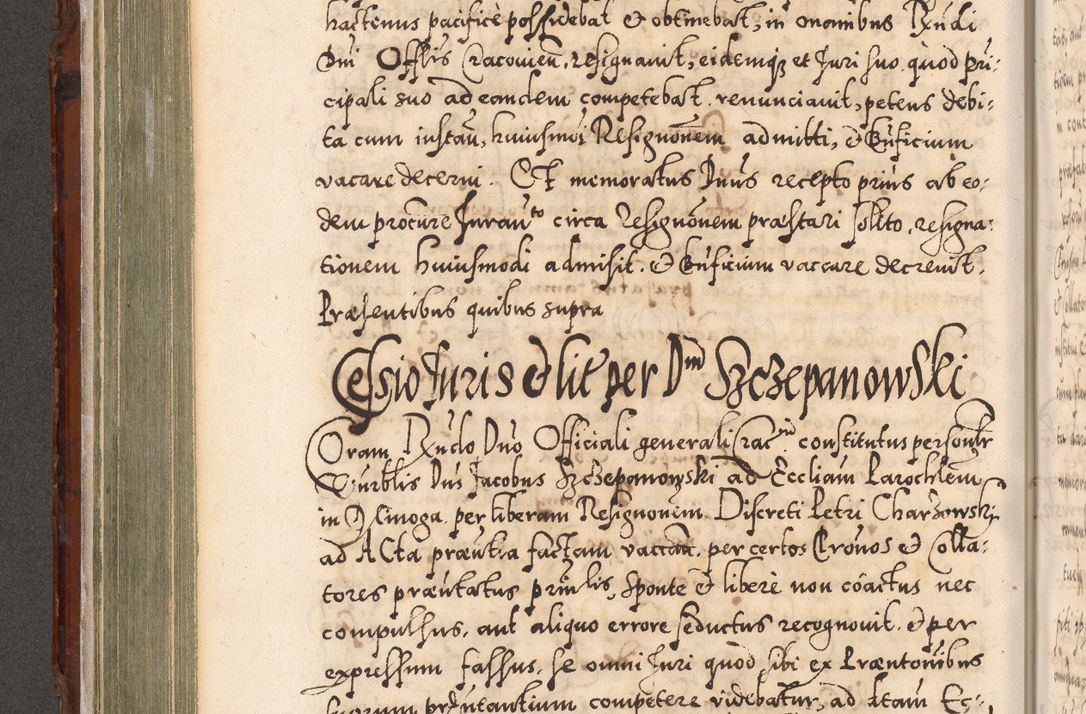 hactenus pacificè possidebat & obtinebat, in manibus Rndi
Dni Offlis Cracovien, resignavit, eidemq et Juri suo quod prī-
cipali suo ad eandem competebat renunciavit, petens debi-
ta cum instan, huiusmoi Resignonem admitti, & Bnficium
vacare decerni. Et memoratus Dnus recepto prius ab eo-
dem procure Juramto circa resignonem præstari sollto, resigna-
tionem huiusmodi admisit, & Bnficium vaccare decrevit.
Præsentibus quibus supra
Cessio Juris & lit per Dnm Szczepanowski
Coram Rndo Dno Officiali generali Cracn constitutus personlr
Vnrblis Dns Jacobus Szczepanowski ad Eccliam Parochlem
in per liberam Resignonem Discreti Petri Charzowski
ad Acta præntia factam vaccan, per certos Pronos & Colla-
tores præntatus prinlis, sponte & liberè non cōactus nec
compulsus, aut aliquo errore seductus recognovit, & per
expressum fassus, se omni Juri quod sibi ex Præntonibus
suorum præntantium competere videbatur, ad dtam Ec-